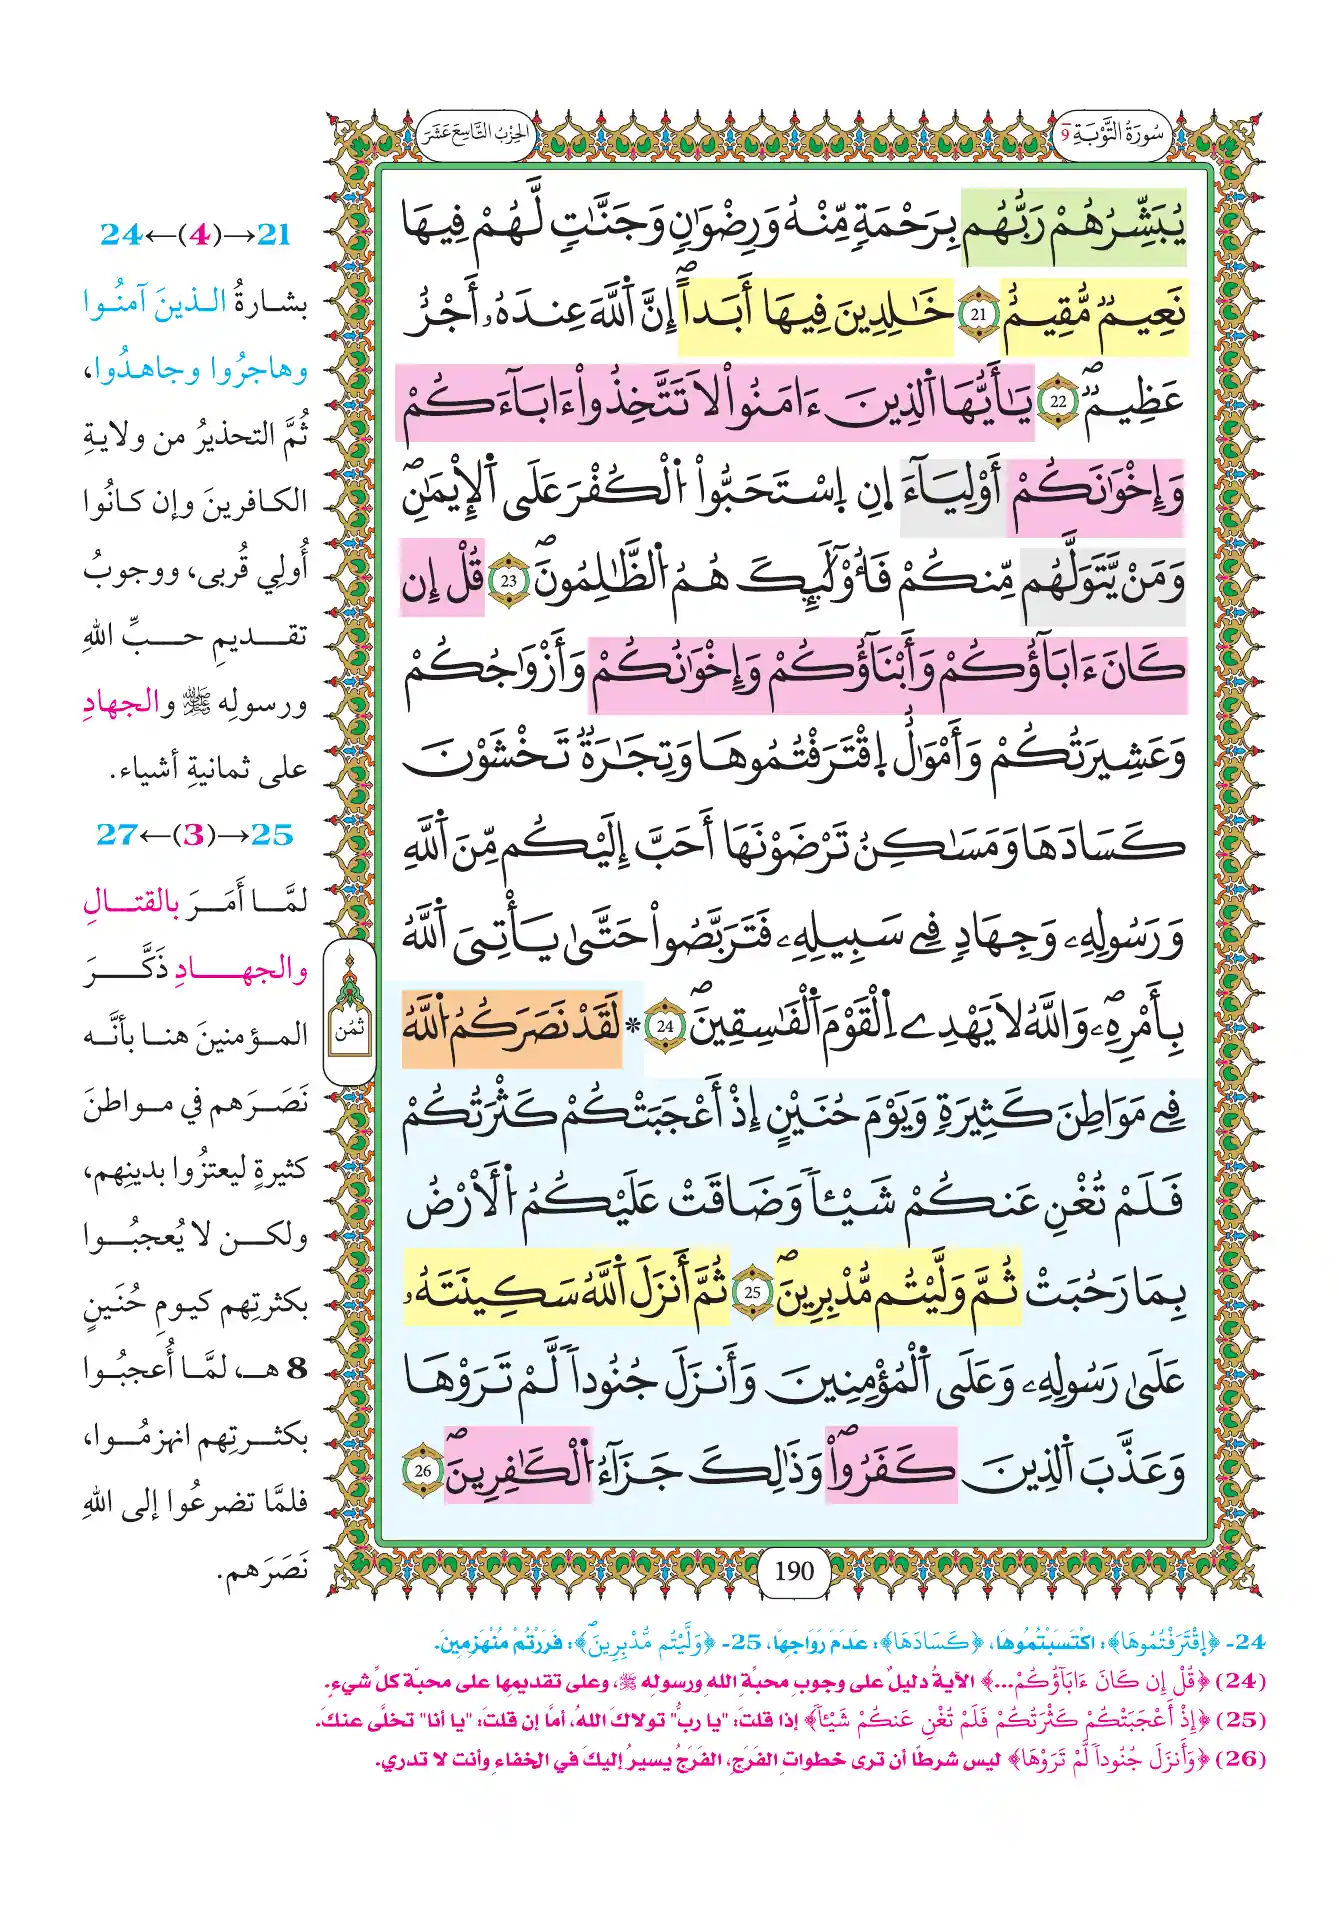 سُورَةُ التَّوْبَةِ 9
الحِزْبُ التَّاسِعَ عَشَرَ
يُبَشِّرُهُمْ رَبُّهُم بِرَحْمَةٍ مِّنْهُ وَرِضْوَٰنٍ وَجَنَّٰتٍ لَّهُمْ فِيهَا
نَعِيمٌ مُّقِيمٌ 21 خَٰلِدِينَ فِيهَا أَبَداًۖ إِنَّ اَ۬للَّهَ عِندَهُۥ أَجْرٌ
عَظِيمٌۖ 22 يَٰأَيُّهَا اَ۬لذِينَ ءَامَنُواْ لَا تَتَّخِذُواْ ءَابَآءَكُمْ
وَإِخْوَٰنَكُمْ أَوْلِيَآءَ اِنِ اِ۪سْتَحَبُّواْ اُ۬لْكُفْرَ عَلَى اَ۬لْإِيمَٰنِۖ
وَمَنْ يَّتَوَلَّهُم مِّنكُمْ فَأُوْلَٰٓئِكَ هُمُ اُ۬لظَّٰلِمُونَۖ 23 قُلْ إِن
كَانَ ءَابَآؤُكُمْ وَأَبْنَآؤُكُمْ وَإِخْوَٰنُكُمْ وَأَزْوَٰجُكُمْ
وَعَشِيرَتُكُمْ وَأَمْوَٰلٌ اِ۪قْتَرَفْتُمُوهَا وَتِجَٰرَةٌ تَخْشَوْنَ
كَسَادَهَا وَمَسَٰكِنُ تَرْضَوْنَهَا أَحَبَّ إِلَيْكُم مِّنَ اَ۬للَّهِ
وَرَسُولِهِۦ وَجِهَادٍ فِے سَبِيلِهِۦ فَتَرَبَّصُواْ حَتَّىٰ يَأْتِىَ اَ۬للَّهُ
بِأَمْرِهِۦۖ وَاللَّهُ لَا يَهْدِے اِ۬لْقَوْمَ اَ۬لْفَٰسِقِينَۖ 24 * لَقَدْ نَصَرَكُمُ اُ۬للَّهُ
فِے مَوَاطِنَ كَثِيرَةٍ وَيَوْمَ حُنَيْنٍ إِذْ أَعْجَبَتْكُمْ كَثْرَتُكُمْ
فَلَمْ تُغْنِ عَنكُمْ شَيْـٔاً وَضَاقَتْ عَلَيْكُمُ اُ۬لْأَرْضُ
بِمَا رَحُبَتْ ثُمَّ وَلَّيْتُم مُّدْبِرِينَۖ 25 ثُمَّ أَنزَلَ اَ۬للَّهُ سَكِينَتَهُۥ
عَلَىٰ رَسُولِهِۦ وَعَلَى اَ۬لْمُؤْمِنِينَ وَأَنزَلَ جُنُوداً لَّمْ تَرَوْهَا
وَعَذَّبَ اَ۬لذِينَ كَفَرُواْۖ وَذَٰلِكَ جَزَآءُ اُ۬لْكَٰفِرِينَۖ 26
ثُمُن
190
21→(4)←24
بشارةُ الذينَ آمنُوا
وهاجرُوا وجاهدُوا،
ثُمَّ التحذيرُ من ولايةِ
الكافرينَ وإن كانُوا
أُولِي قُربى، ووجوبُ
تقديمِ حبِّ اللهِ
ورسولِه ﷺ والجهادِ
على ثمانيةِ أشياء.
25→(3)←27
لمَّا أَمَرَ بالقتالِ
والجهادِ ذَكَّرَ
المؤمنينَ هنا بأنَّه
نَصَرَهم في مواطنَ
كثيرةٍ ليعتزُّوا بدينِهم،
ولكن لا يُعجبُوا
بكثرتِهم كيومِ حُنَينٍ
8 هـ، لمَّا أُعجبُوا
بكثرتِهم انهزمُوا،
فلمَّا تضرعُوا إلى اللهِ
نَصَرَهم.
24- ﴿إِقْتَرَفْتُمُوهَا﴾: اكْتَسَبْتُمُوهَا، ﴿كَسَادَهَا﴾: عَدَمَ رَوَاجِهَا، 25- ﴿وَلَّيْتُم مُّدْبِرِينَۖ﴾: فَرَرْتُمْ مُنْهَزِمِينَ.
(24) ﴿قُلْ إِن كَانَ ءَابَآؤُكُمْ...﴾ الآيةُ دليلٌ على وجوبِ محبَّةِ اللهِ ورسولِه ﷺ، وعلى تقديمِها على محبّة كلِّ شيءٍ.
(25) ﴿إِذْ أَعْجَبَتْكُمْ كَثْرَتُكُمْ فَلَمْ تُغْنِ عَنكُمْ شَيْـٔاً﴾ إذا قلتَ: "يا ربُّ" تولاكَ اللهُ، أمَّا إن قلتَ: "يا أنا" تخلَّى عنكَ.
(26) ﴿وَأَنزَلَ جُنُوداً لَّمْ تَرَوْهَا﴾ ليس شرطًا أن ترى خطواتِ الفَرَجِ، الفَرَجُ يسيرُ إليكَ في الخفاءِ وأنت لا تدري.